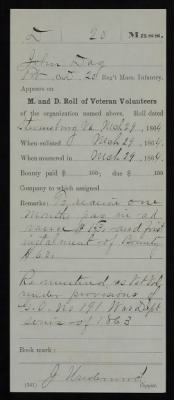 D 20 Mass.
John Day
Pvt., Co. D, 20 Reg't Mass. Infantry.
Appears on
M. and D. Roll of Veteran Volunteers
of the organization named above. Roll dated
Va. Mch 29, 1864
When enlisted Mch 29, 1864.
When mustered in Mch 29, 1864.
Bounty paid $ 100; due $ 100
Company to which assigned
Remarks: To receive one
month pay in ad
vance $13. and first
instalment of Bounty
$60.
Remustered as Vet Vol
under provisions of
G.O. No 191 War Dept
series of 1863
Book mark:
J. Underwood
(341) Copyist.